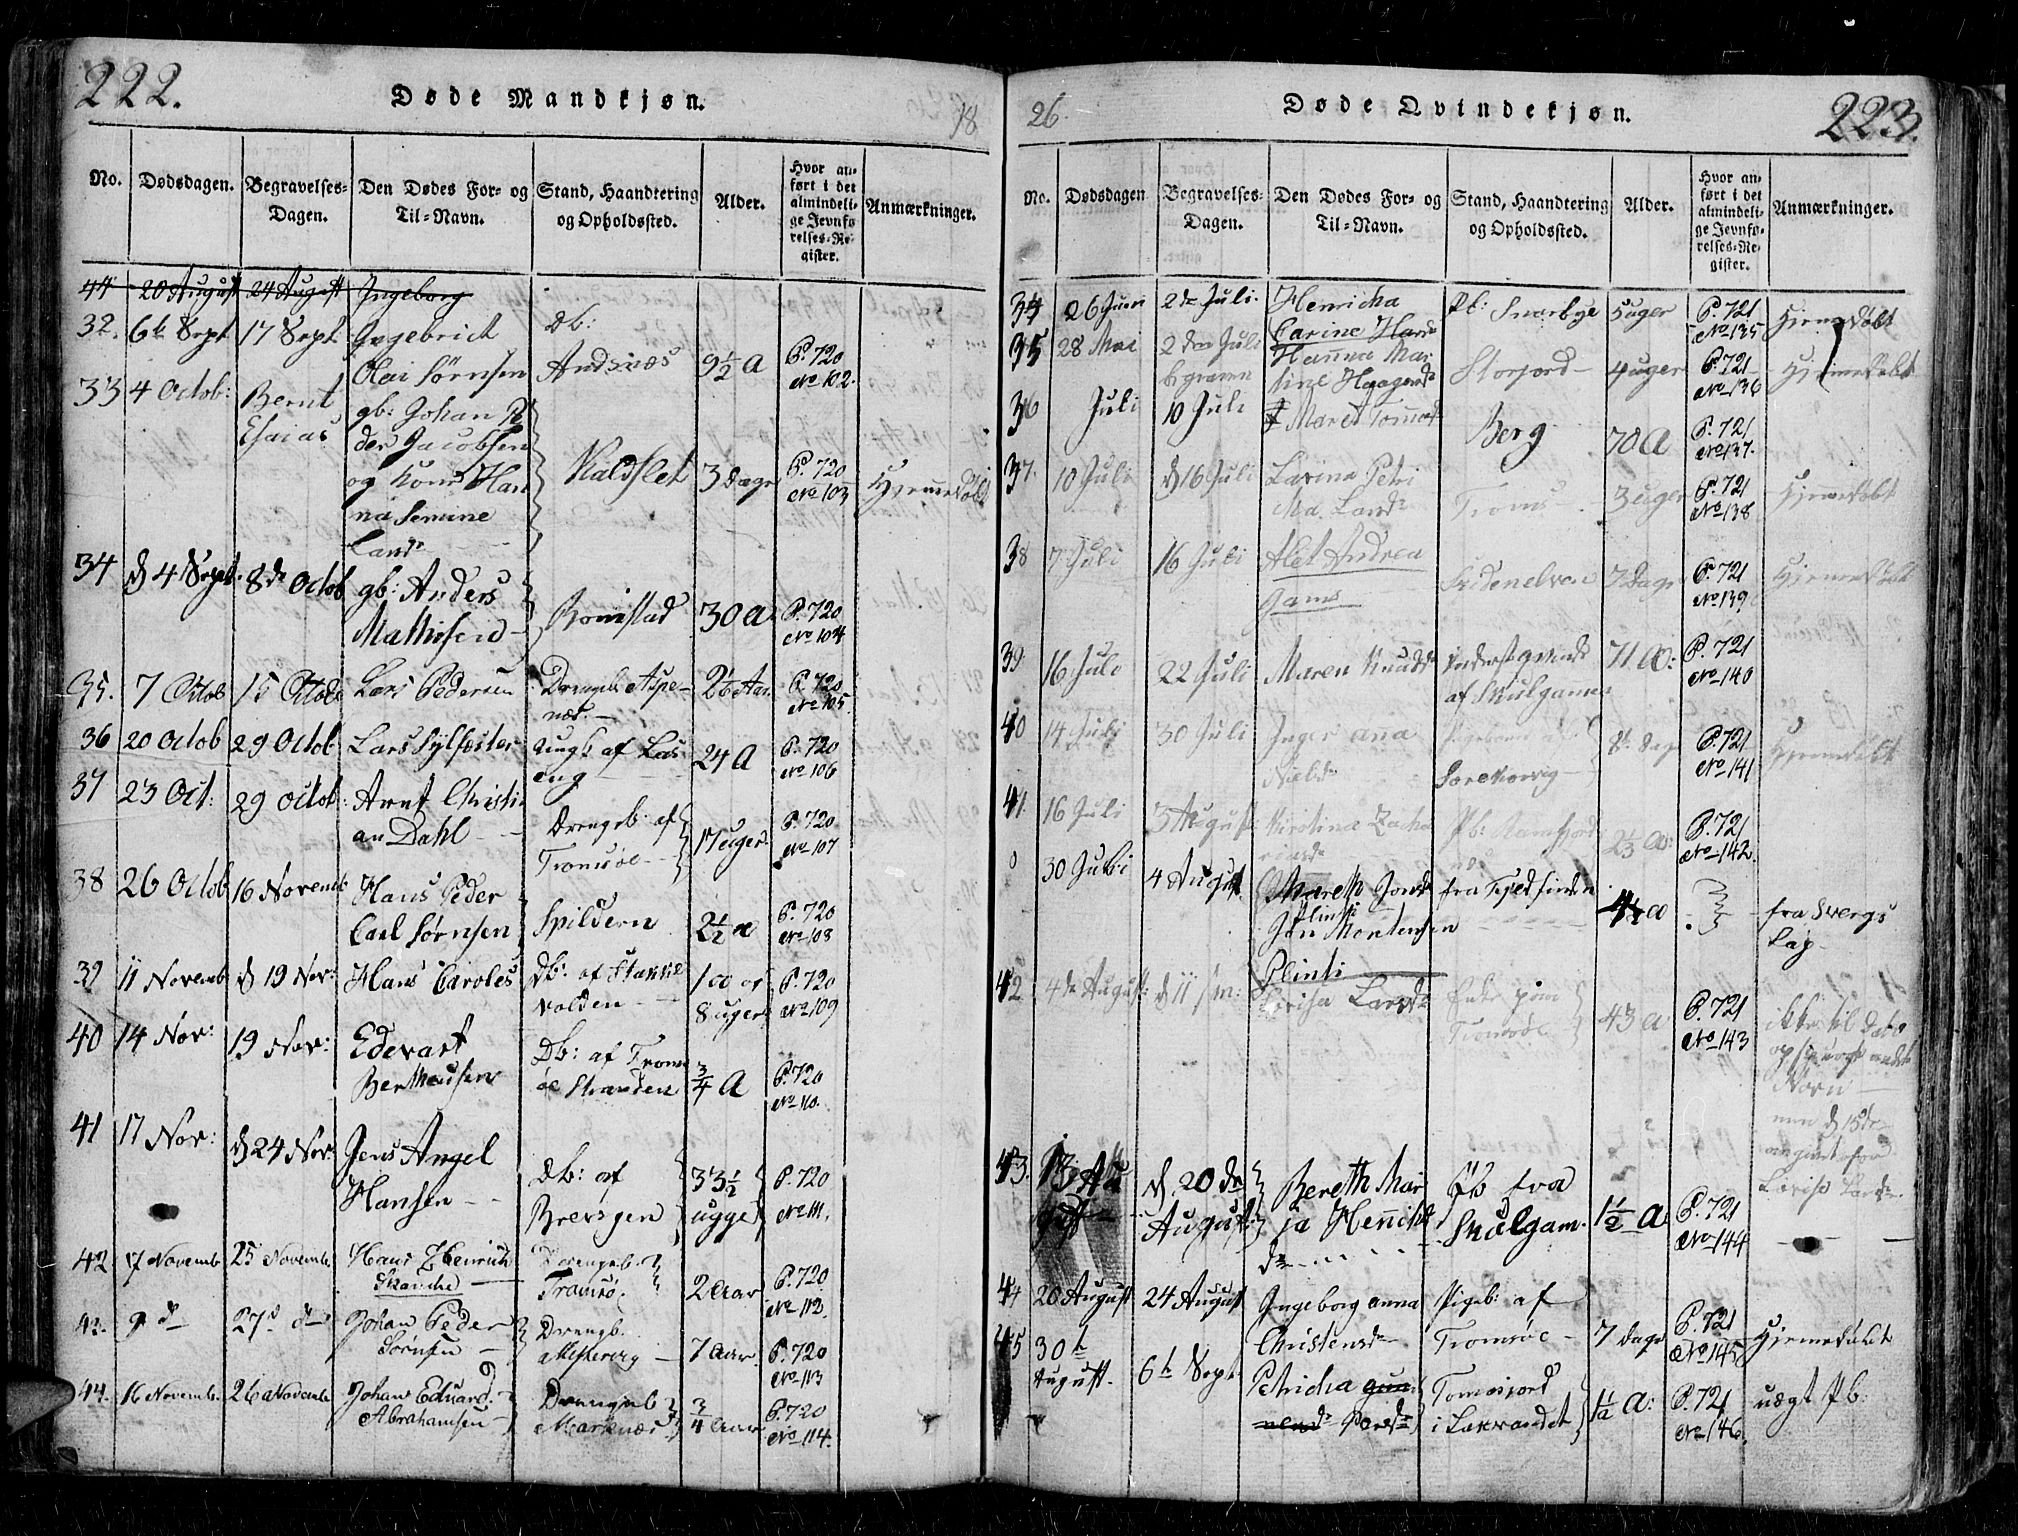 222.
Døde Mandkjøn.
18
No.
Dødsdagen.
Begravelses-
Dagen.
Den Dødes For- og
Til-Navn.
Stand, Haandtering
og Opholdssted.
Alder.
Hvor an-
ført i det
almindeli-
ge Jevnfø-
relses-Re-
gister.
Anmærkninger.
44 20 August 24 August Ingeborg
32. 6te Sept 17 Sept Ingebrict Db:
Olai Sørnsen Andsnæs 9½ A P. 720
No 102.
33 4 Octob: Bernt gb: Johan Pe
Esaias der Jacobsen
og Kone Han Kaldslet 3 Dage P. 720
na Semine No 103 Hjemmedøbt
Lands
34 d 4 Sept. 8de Octob gb: Anders
Mathisen Bomstad 30 A P. 720
No 104
35. 7 Octob 15 Octob Lars Pedersen Drengeb: Aspe-
næs. 2½ Aar P. 720
No 105.
36 20 Octob 29 Octob Lars Sylfæster Ungk af Lax
eng 24 A P. 720
No 106
37 23 Oct: 29 Octob: Arnt Christi
an Dahl Drengeb: af
Tromsøe 17 uger P. 720
No 107
38 26 Octob 16 Novemb Hans Peder
Carl Sørnsen Spildern 2½ a P. 720
No 108
39 11 Novemb d 19 Nov: Hans Caroles Db: af
valden 1 a og
8 uger P. 720
No 109
40 14 Nov: 19 Nov: Edevart
Bertheusen Db: af Troms
øe Stranden ¾ A P. 720
No 110.
41 17 Nov: d 24 Nov: Jens Angel
Hansen Db: af
Brevigen 33½
uger P. 720
No 111.
42 17 Novemb 25 Novembr Hans Henrich
Skanche Drengeb
Tromsø. 2 Aar P. 720
No 112.
43. 9 d 27d d Johan Peder
Sørnsen Drengb.
Mestervig 7 Aar P. 720
No 113
44. 16 Novemb. 26 Novembr Johan Eduard
Abrahamsen Drengeb
Marknæs ¾ Aar P. 720
No 114.
26.
Døde Qvindekjøn.
223.
No.
Dødsdagen
Begravelses-
Dagen.
Den Dødes For- og
Til-Navn.
Stand, Haandtering
og Opholdssted.
Alder.
Hvor an-
ført i det
almindeli-
ge Jevnfø-
relses-Re-
gister.
Anmærkninger.
34 26 Juni 2de Juli. Henricha
Carine Hans Pb: Snarbye 5 uger P. 721
No 135 Hjemedøbt
35 28 Mai 2den Juli
begraven Hanna Mar
tine Haagensd Storjord 4 uger P. 721
No 136 Hjemedøbt
36 Juli 10 Juli Maret Tommæs Berg 70 A P. 721
No 137.
37. 10 Juli d 16 Juli Larina Petri
Ma. Landr Troms 3 uger P. 721
No 138 Hjemedøbt
38 7 Juli 16 Juli Alet Andrea
Hans Sidenelven 7 Dage P. 721
No 139 Hjemedøbt
39 16 Juli 22 Juli Maren Knudsd
af Skulgamen 71 A: P. 721
No 140
40 14 Juli 30 Juli Inger ana
Nielsd Pigebarn af 8 Dage P. 721
No 141 Hjemedøbt
41 16 Juli 3 August Kirstina Zacha
riasd Pb: Ramfjord 2½ A: P. 721
No 142.
30 Julii 4 August Mareth Jonsd
Plinti
Jon Mortensen
Plinti fra 4½ a fra Svergs
Lap
42 4de August: d 11 sm: Lovisa Larsd Enke
Tromsøe 43 A P. 721
No 143 ikke til Dato
Navn
men d 15de
angivet for
Lovise Larsd.
43. 13 Au
gust d 20de
August Bereth Mar
ja Hennich
dr Pb fra
Skulgam. 1½ A P. 721
No 144
44 20 August 24 August Ingeborg anna
Christensdr Pigeb: af
Tromsøe 7 Dage P. 721
No 145 Hjemedøbt
45 30te
August. 6te Sept Petricha
Tomasjord
i Laxvandet 1½ A: P. 721
No 146. uægt Pb: